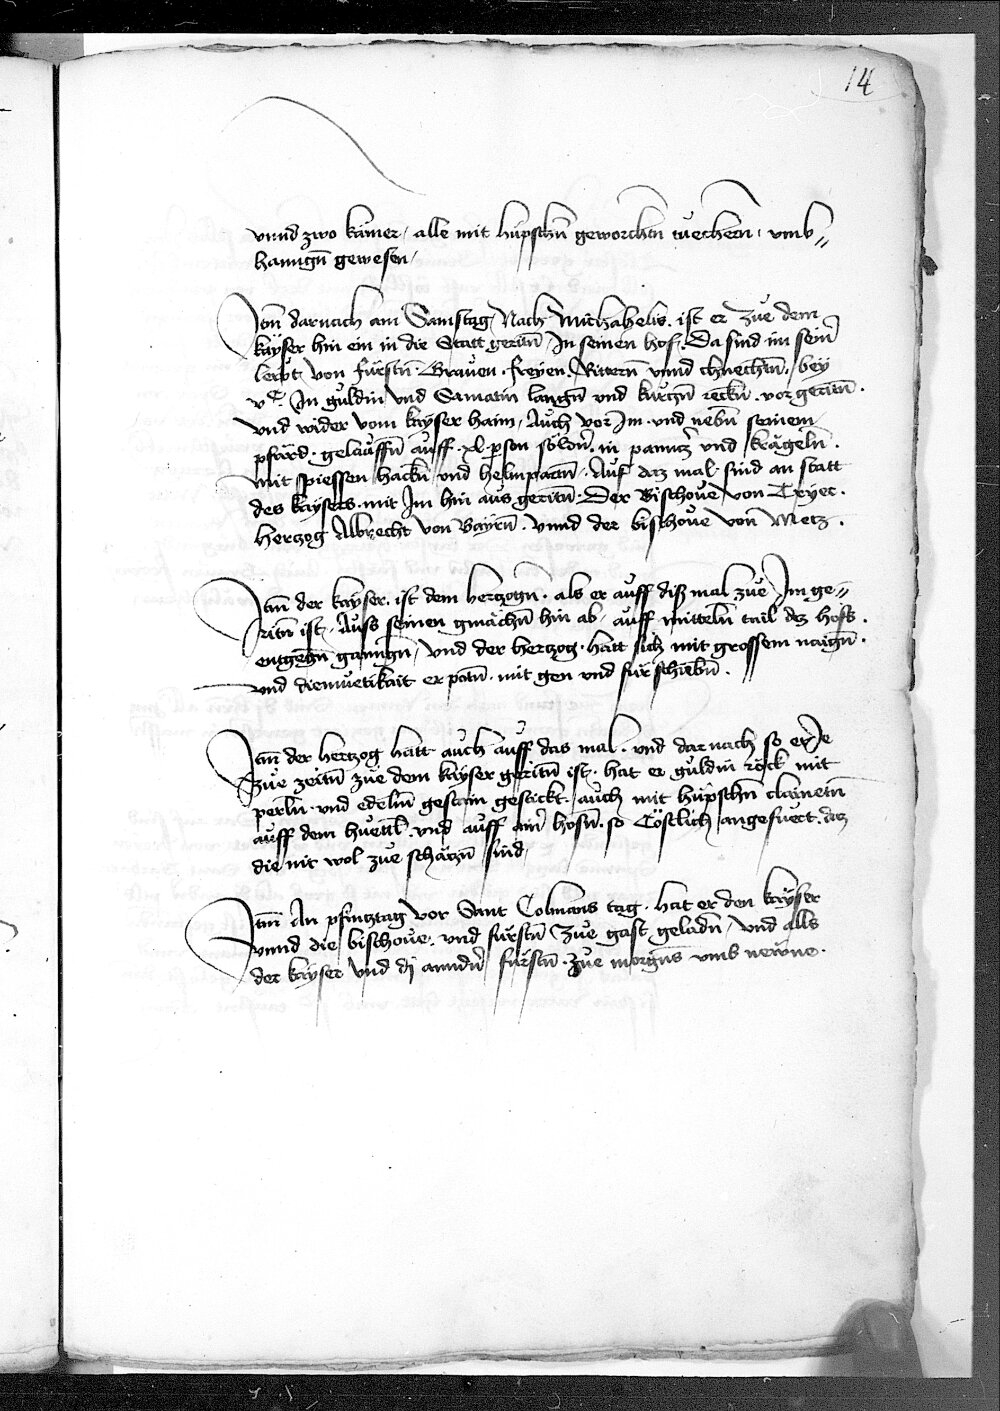 14
vnnd zwo kamer / alle mit hüpschn geworchten tüechern / vmb„
hanngn gewesen /
Item darnach am Samstag Nach Michahelis . ist er züe dem
kayser hin ein in die Statt geritn̄ / In seinen hof . Da sind im sein̄
lewt von fürstn̄ . Grauen . freyen . Rittern vnnd chnechtn̄ . bey
vᶜ . In guldin vnd Samatin langn̄ vnd kurtzn̄ röckn̄ . vor geritn̄ .
vnd wider vom kayser haim / Auch vor Im . vnd nebn̄ seinem
pfärd . gelauffn̄ auff . xl . person söldn̄ . in panntz̄ vnd krägeln̄ .
mit spiessen hackn̄ vnd helmpartn̄ . Auf daz mal . sind an statt
des kaysers . mit Im hin aus geritn̄ . Der Bischoue von Tryer .
Hertzog Albrecht von Bayrn̄ . vnnd der bischoue von Metz .
Item der kayser . ist dem hertzogn̄ . als er auff diß mal züe Im ge„
ritn̄ ist / Auss seinen gmächn̄ hin ab / auff mitteln̄ tail dez hofs .
entgegn̄ ganngn̄ / vnd der hertzog . hatt sich mit grossem naign̄ .
vnd diemuetikait erpotn̄ . mit gen vnd für schiebn̄ .
Item der hertzog hatt auch auff das mal . vnd darnach so er ye
züe zeitn̄ züe dem kayser geritn̄ ist . hat er guldin röck mit
perln̄ . vnd edelm̄ gestain gestickt . auch mit hüpschn̄ clainetn̄
auff dem huettl . vnd auff ain̄ hosn̄ . so Cöstlich angefüert . daz
die nit wol züe schätzn̄ sind /
Item An pfintztag vor Sant Colmans tag . hat er den kayser
vnnd die bischoue . vnd fürstn̄ züe gast geladn̄ / vnd alls
der kayser vnd dj anndn̄ fürstn̄ . züe morgn̄s vmb newne .